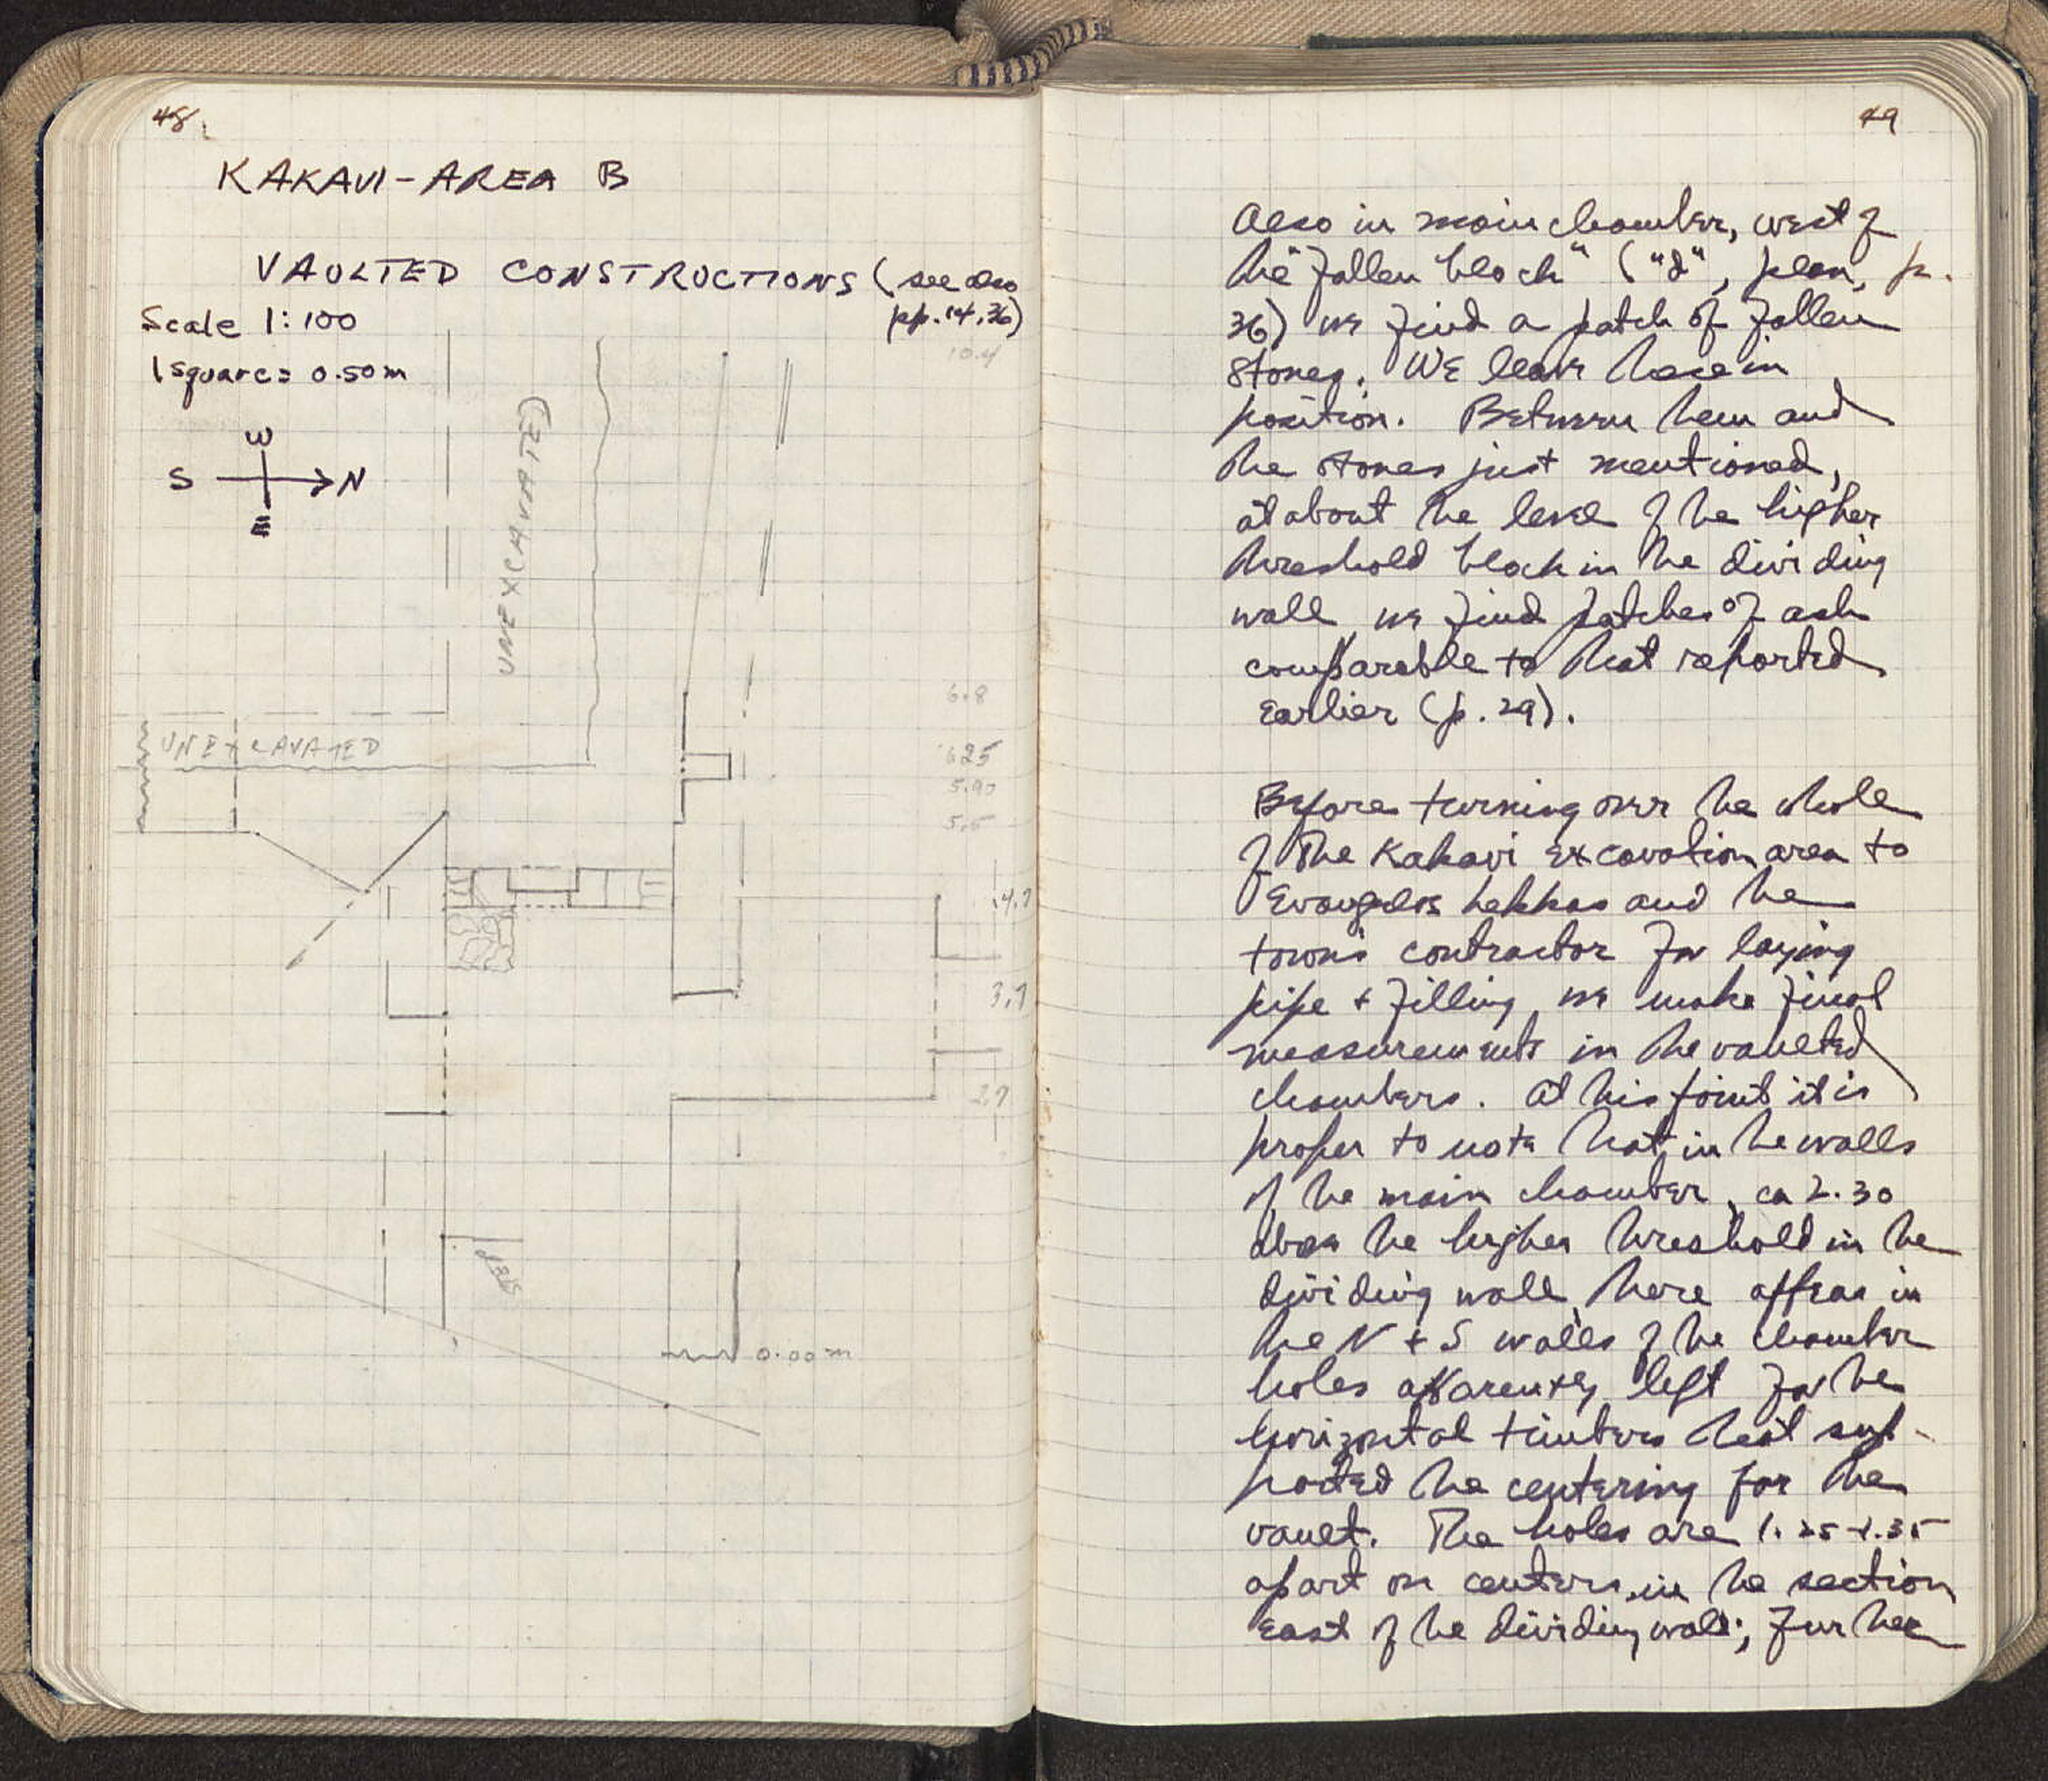 48
KAKAVI-AREA B
VAULTED CONSTRUCTIONS (see also
pp. 14, 36)
Scale 1:100
1 square = 0.50m
W
S N
E
UNEXCAVATED
UNEXCAVATED
10.4
6.8
6.25
5.90
5.5
4.7
3.7
2.7
0.00m
49
Also in main chamber, west of
the "fallen block" ("d", plan, p.
36) we find a patch of fallen
stones. We leave these in
position. Between them and
the stones just mentioned,
at about the level of the higher
threshold block in the dividing
wall we find patches of ash
comparable to that reported
earlier (p. 29).
Before turning over the whole
of the Kakavi excavation area to
Evangelos Lekkas and the
town's contractor for laying
pipe + filling we make final
measurements in the vaulted
chambers. At this point it is
proper to note that in the walls
of the main chamber, ca 2.30
above the higher threshold in the
dividing wall, there appear in
the N + S walls of the chamber
holes apparently left for the
horizontal timbers that sup-
ported the centering for the
vault. The holes are 1.25-1.35
apart on centers in the section
east of the dividing wall; further